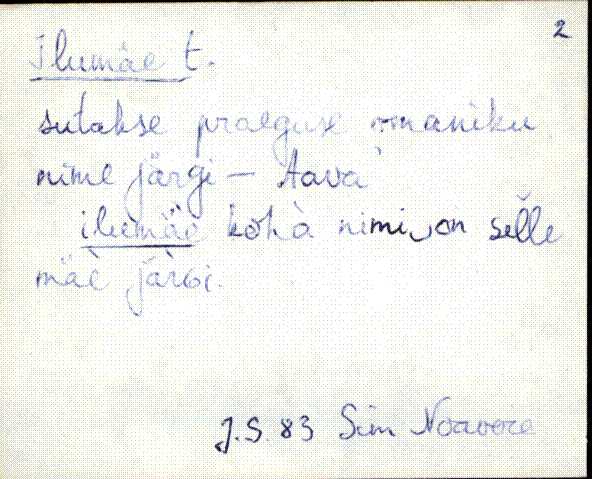 2
Ilumäe t.
sutakse praeguse omaniku
nime järgi – Aava
ilumäe kòhà nimi on selle
mäe järgi.
J.S. 83 Sim